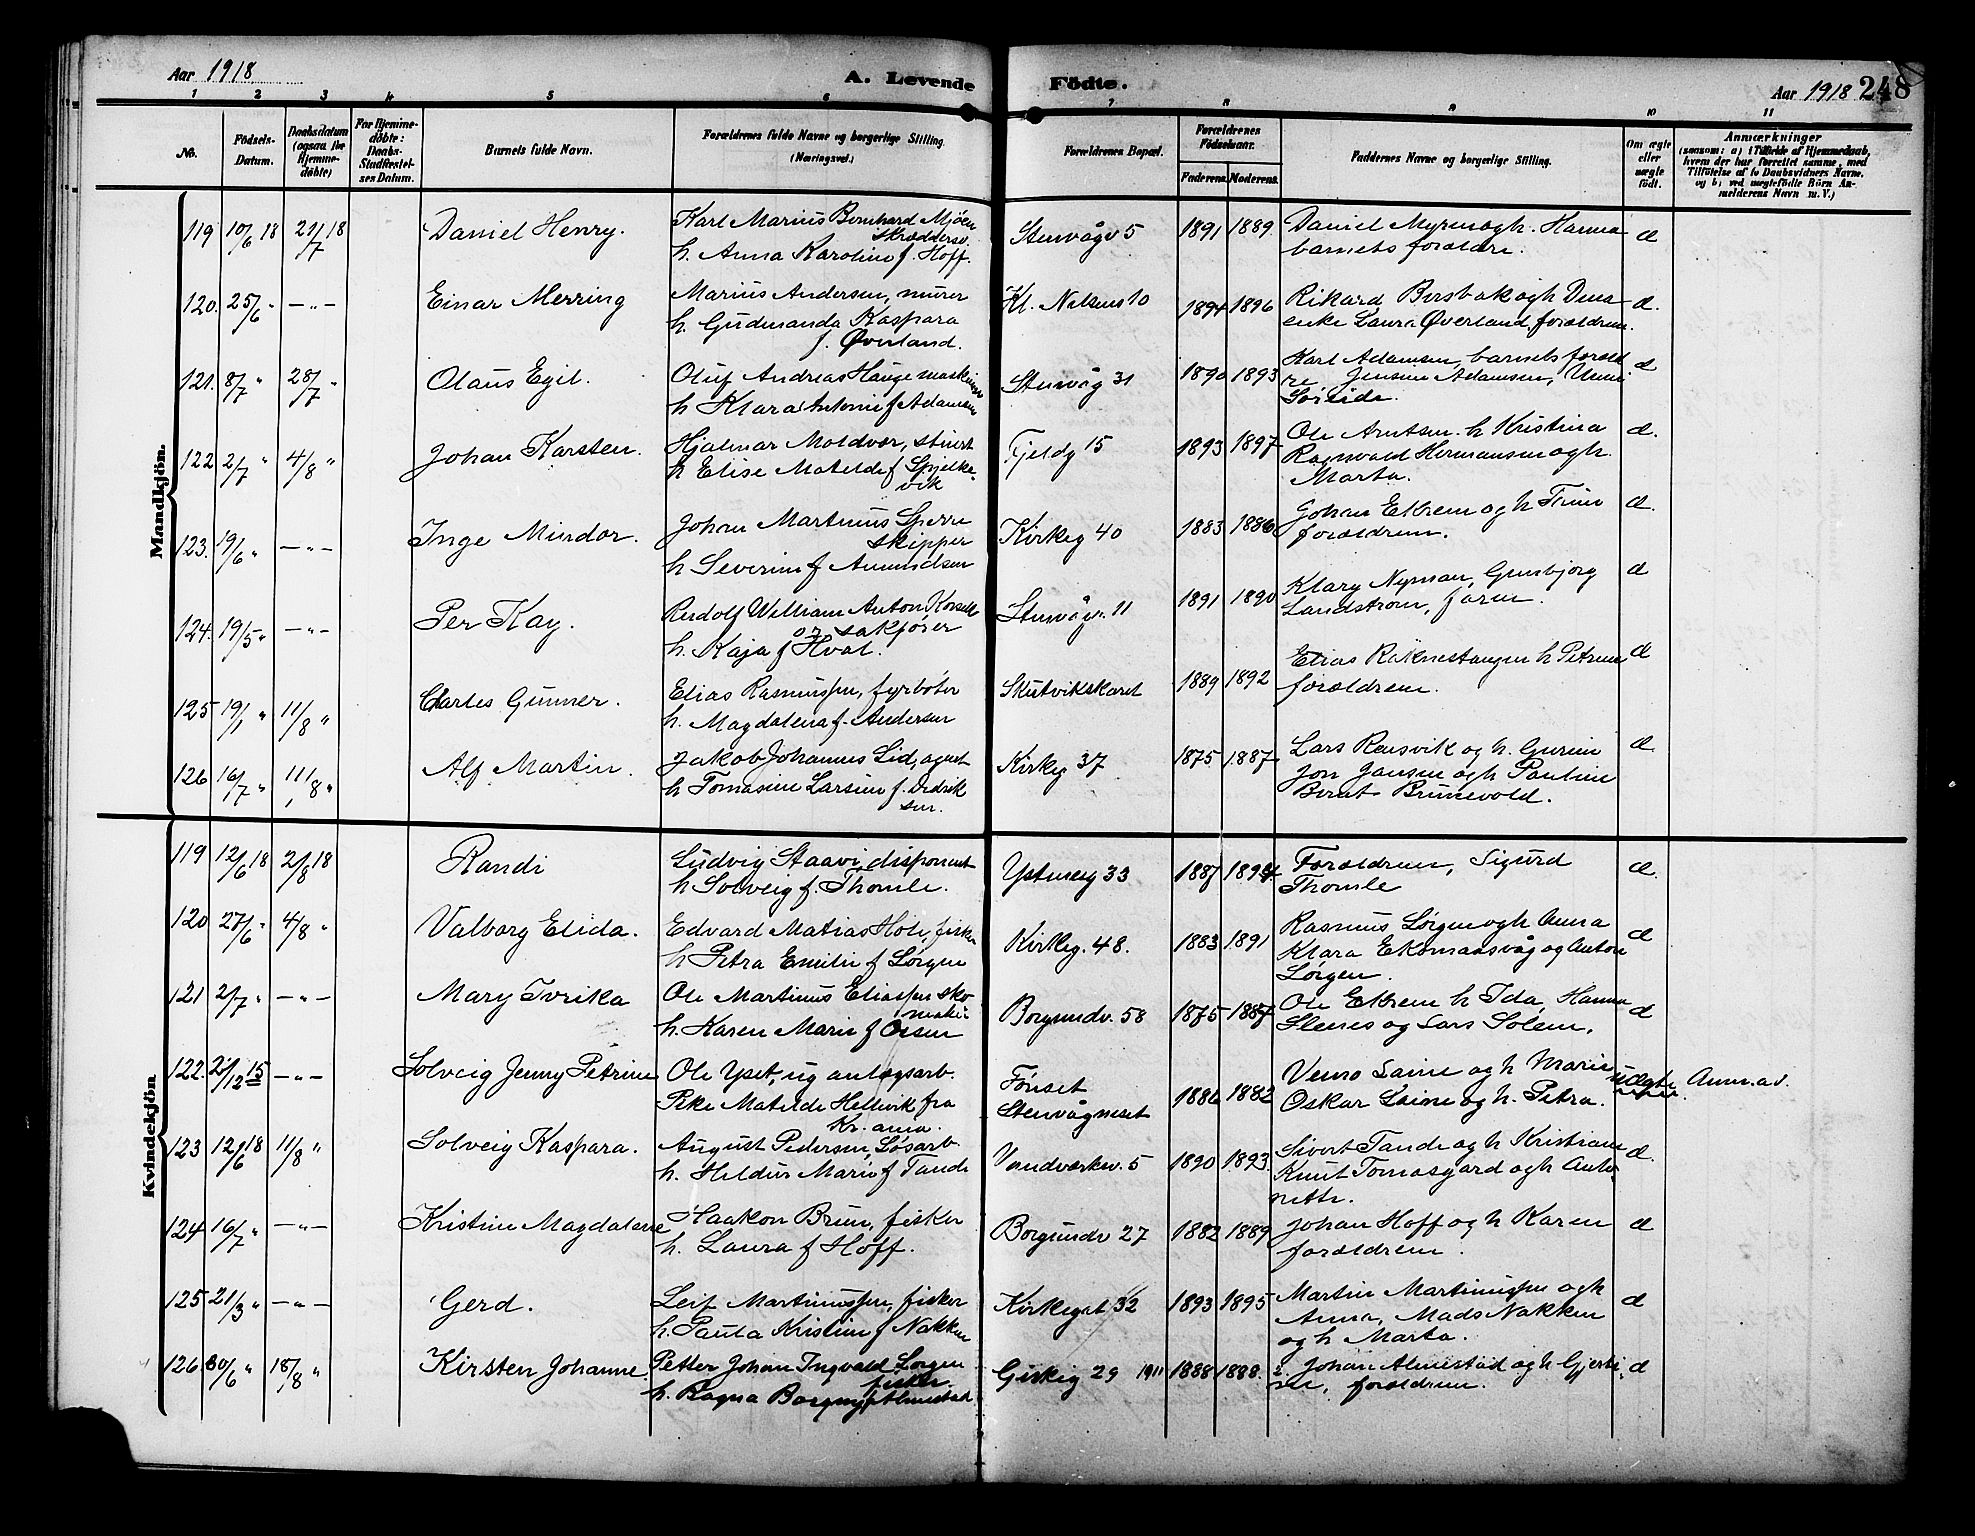 Aar 1918
A. Levende Födte.
Aar 1918 248
1 2 3 4 5 6 7 8 9 10 11
No.
Födsels-Datum.
Daabsdatum (ogsaa for Hjemmedöbte)
For Hjemmedöbte: Daabs-Stadfæstelses Datum.
Barnets fulde Navn.
Forældrenes fulde Navne og borgerlige Stilling. (Næringsvei.)
Forældrenes Bopæl.
Forældrenes Födselsaar.
Faderens. Moderens.
Faddernes Navne og borgerlige Stilling.
Om ægte eller uægte födt.
Anmærkninger (saasom: a) i Tilfælde af Hjemmedaab, hvem der har forrettet samme, med Tilföielse af to Daabsvidners Navne, og b) ved uægtefödte Börn Anmelderens Navn m. V.)
Mandkjön.
119 10/6 18 21/7 18 Daniel Henry. Karl Marius Bernhard Mjøen
skræddersv.
h. Anna Karoline f. Hoff. Stenvågv 5 1891 1889 Daniel Myren og h. Hanna
barnets forældre. æ
120. 25/6 " — " — Einar Merring Marius Andersen, murer
h. Gudmanda Kaspara
f. Øverland. Kl. Nelsens 10 1894 1896 Rikard
enke Laura Øverland, forældrene. æ.
121. 8/7 " 28/7 " Olaus Egil. Oluf Andreas Hauge
h Klara Antonie f Adamsen Stenvåg 31 1890 1893 Karl Adamsen, barnets foræld
re, Jensine Adamsen,
Soreide. æ
122 2/7 " 4/8 " Johan Karsten. Hjalmar Moldvær, stuert
h Elise Matilde f Spjelke-
vik Fjeldg 15 1893 1897 Ole Arntsen h Kristina
Ragnvald Hermansen og h.
Marta. æ.
123. 19/6 " — " — Inge Mindor. Johan Martinus Sperre
skipper
h Severine f Amundsen Kirkeg 40 1883 1886 Johan Ekrem og h Trine
forældrene. æ.
124. 19/5 " — " — Per Kay. Rudolf William Anton
or. sakfører
h. Kaja f Hval. Stenvågv. 11 1891 1890 Klary Nyman, Gunbjorg
Landstrom, faren. æ
125 19/1 " 11/8 " Charles Gunner. Elias Rasmussen, fyrbøter
h. Magdalena f. Andersen Skutvikskaret 1889 1892 Elias Raknestangen h Petrine
forældrene. æ
126 16/7 " 11/8 " Alf Martin. Jakob Johannes Lid, agent
h Tomasine Larsine f. Didrik
sen. Kirkeg 37 1875 1887 Lars Rensvik og h. Gurine
Jon Jansen og h Pauline
Bernt Brunevold. æ.
Kvindekjön
119 12/6 18 2/8 18 Randi Ludvig Staavi, disponent
h Solveig f. Thomle. Ysteneg 33 1887 1894 Forældrene, Sigurd
Thomle æ.
120 27/6 " 4/8 " Valborg Elida. Edvard Matias Hole, fisker
h Petra Emilie f Sørgen Kirkeg. 48. 1883 1891 Rasmus Sørgen og h Anna
Klara Ekornaasvåg og Anton
Sørgen. æ
121 2/7 " — " — Mary Ivrika Ole Martinus Eliassen sko
maker
h. Karen Marie f Ossen Borgundv. 58 1875 1887 Ole Ekrem h Ida, Hanna
Slenes og Lars Solem. æ
122. 21/12 15 — " — Solveig Jenny Petrine Ole Yset, ug anlægsarb.
Pike Matilde Hellevik fra
Kr.ania. Fønset
Stenvågneset 1886 1882 Venro Laine og h Marie
Oskar Laine og h. Petra. Uægte Anm. a.d.
123 12/6 18 11/8 " Solveig Kaspara. August Pedersen Løsarb.
h. Heldur Marie f Tande Vandværksv. 5 1890 1893. Sivert Tande og h Kristiane
Knut Tomasgard og h Anto-
nette. æ.
124 16/7 " — " — Kristine Magdalene Haakon Brun, fisker
h. Laura f Hoff. Borgundv 27 1882 1889 Johan Hoff og h Karen
forældrene. æ
125 21/3 " — " — Gerd. Leif Martinussen, fisker
h. Paula Kristine f Nakken Kirkegat 32 1893 1895 Martin Martinussen og h
Anna, Mads Nakken
og h Marta. æ
126 30/6 " 18/8 " Kirsten Johanne Petter Johan Ingvald Sørgen
fisker
h. Ragna Borgny f Almestad Girkeg 29 1911 1888 1888. Johan Almestad og h Gjerti
ne, forældrene. æ